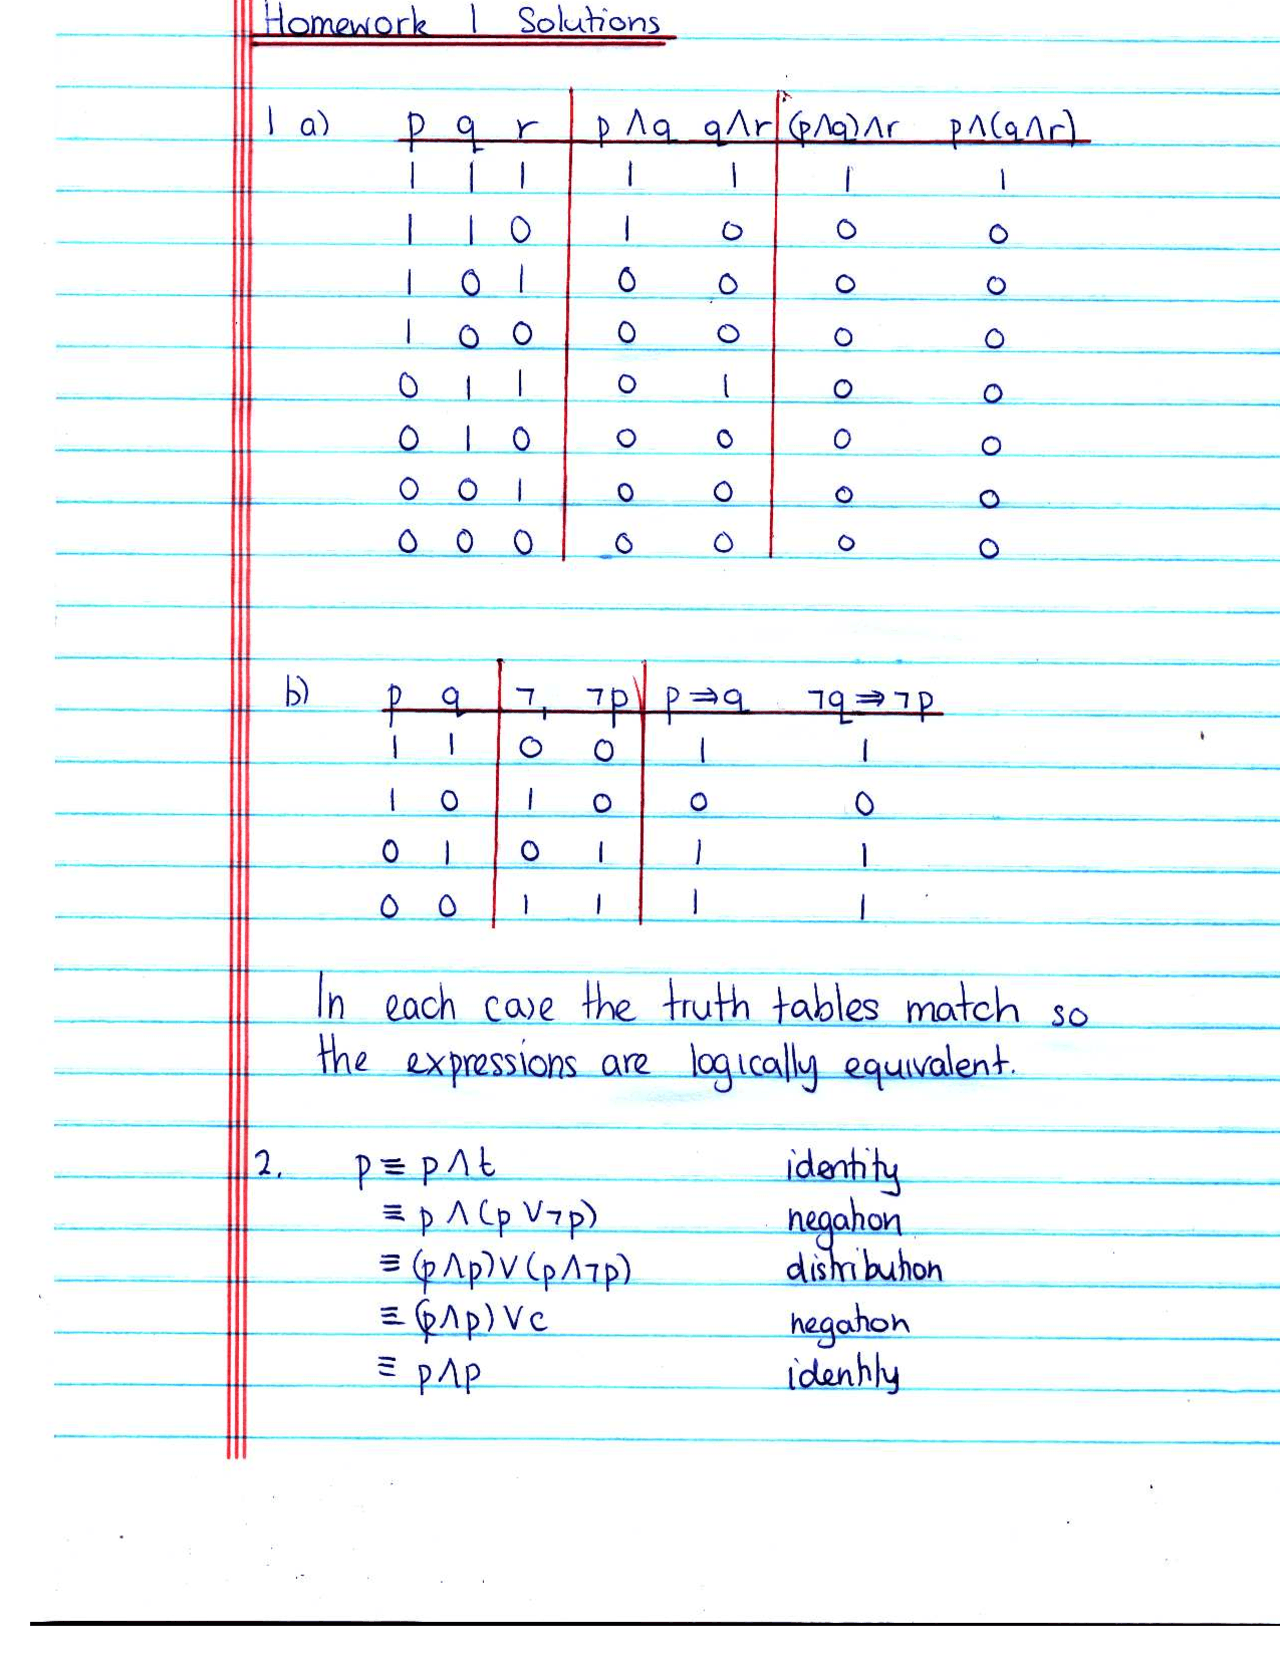 Homework 1 Solutions
1 a) p q r p ∧ q q ∧ r (p∧q)∧r p∧(q∧r)
1 1 1 1 1 1 1
1 1 0 1 0 0 0
1 0 1 0 0 0 0
1 0 0 0 0 0 0
0 1 1 0 1 0 0
0 1 0 0 0 0 0
0 0 1 0 0 0 0
0 0 0 0 0 0 0
b) p q ¬ ¬p p⇒q ¬q⇒¬p
1 1 0 0 1 1
1 0 1 0 0 0
0 1 0 1 1 1
0 0 1 1 1 1
In each case the truth tables match so
the expressions are logically equivalent.
2. p ≡ p ∧ t identity
≡ p ∧ (p ∨ ¬p) negation
≡ (p∧p) ∨ (p∧¬p) distribution
≡ (p∧p) ∨ c negation
≡ p∧p identity